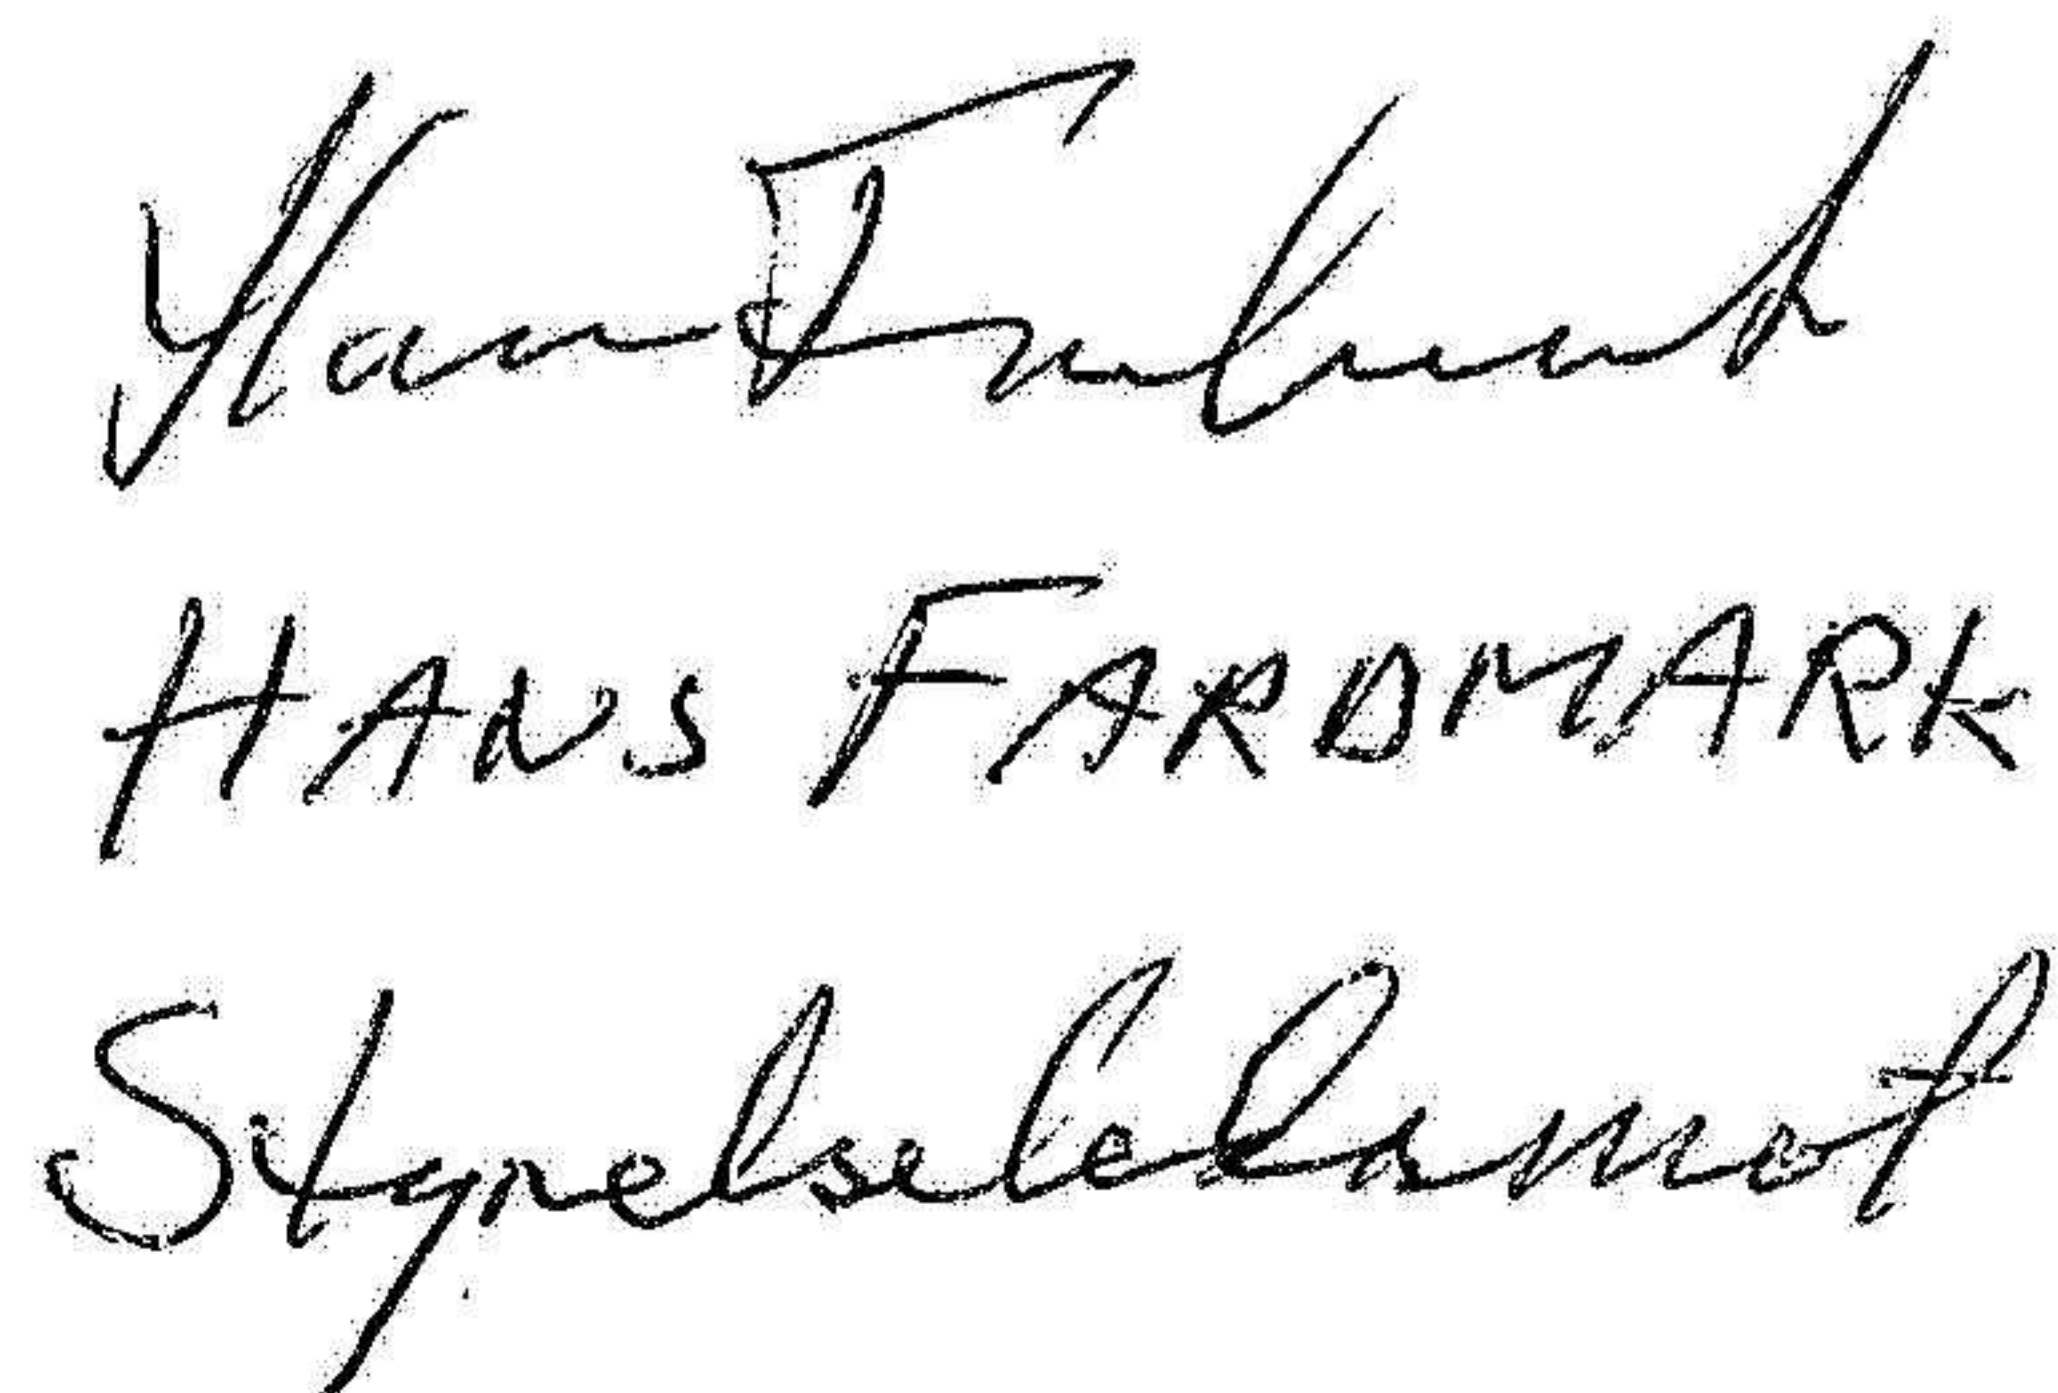 Hans Fardmark
HANS FARDMARK
Styrelseledamot